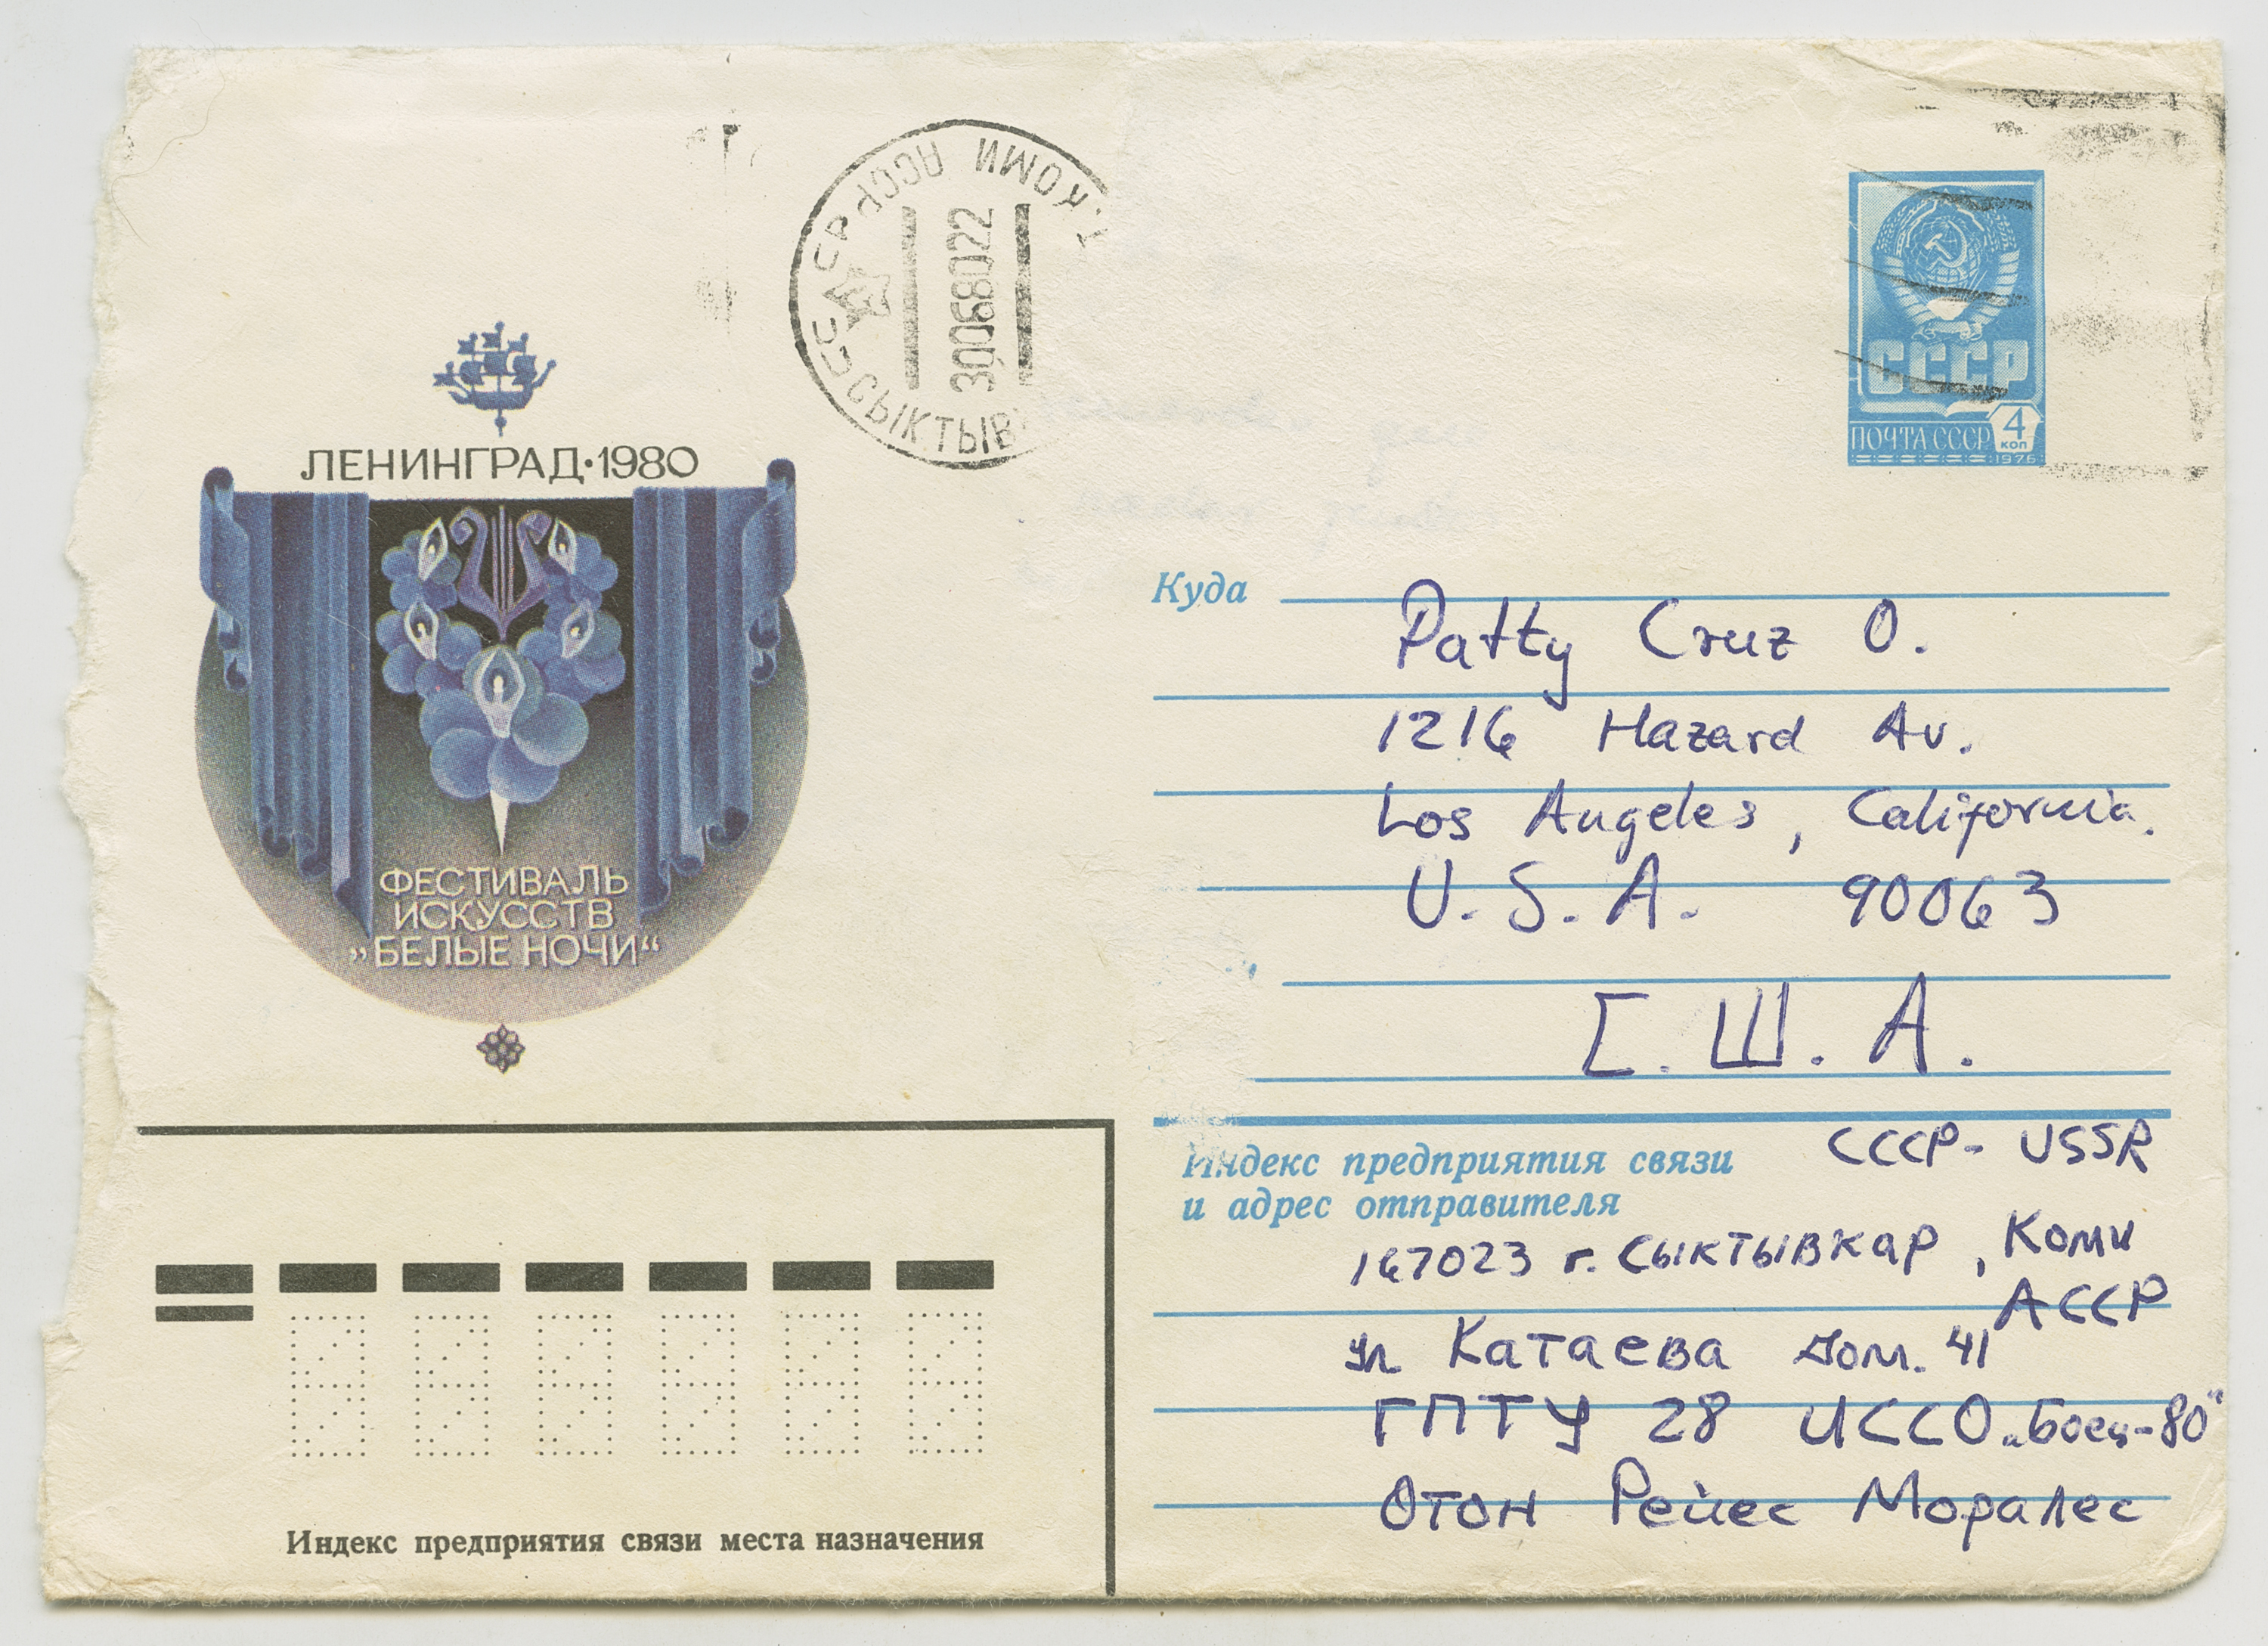 ЛЕНИНГРАД·1980
ФЕСТИВАЛЬ
ИСКУССТВ
„БЕЛЫЕ НОЧИ“
СССР
АССР КОМИ
30068022
СССР
ПОЧТА СССР
4
коп
1976
Куда
Patty Cruz O.
1216 Hazard Av.
Los Angeles, California.
U.S.A. 90063
С.Ш.А.
Индекс предприятия связи
и адрес отправителя
СССР- USSR
167023 г. Сыктывкар, Коми
АССР
ул Катаева Дом. 41
ГПТУ 28 ИССО „Боец-80“
Отон Рейес Моралес
Индекс предприятия связи места назначения